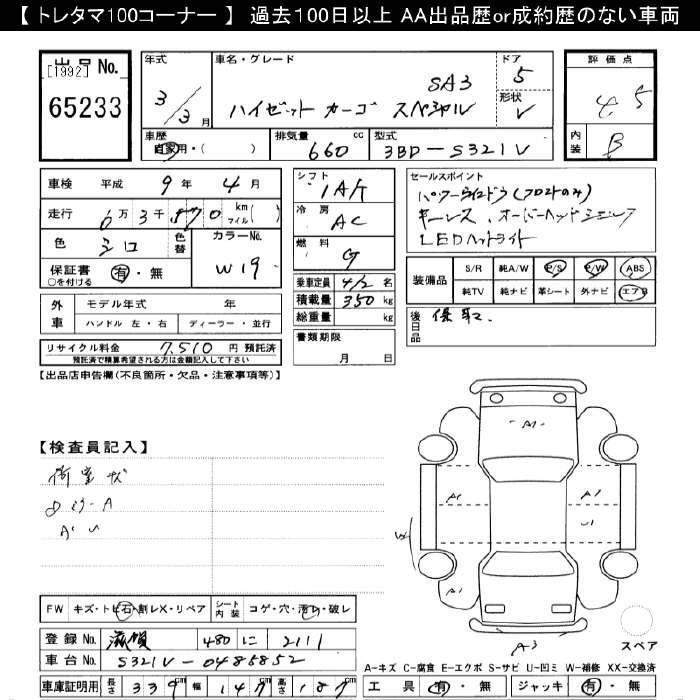 【 トレタマ100コーナー 】 過去100日以上 AA出品歴or成約歴のない車両
出品No.
[1992]
65233
年式
3/3月
車名・グレード
SA3
ハイゼット カーゴ スペシャル
ドア
5
形状
V
評価点
4.5
内装
B
車歴
自家用・( )
排気量
660 cc
型式
3BD-S321V
車検 平成 9年 4月
走行 6万3千570 km マイル( )
色 シロ
色替
カラーNo.
W19
保証書 有・無
○を付ける
外車
モデル年式 年
ハンドル 左・右 ディーラー・並行
リサイクル料金 7,510 円 預託済
預託済で積算希望される方は金額記入して下さい
シフト
IAT
冷房
AC
燃料
G
乗車定員 4/2 名
積載量 350 kg
総重量 kg
書類期限
月 日
セールスポイント
パワーウインドウ(フロントのみ)
キーレス、オーバーヘッドシェルフ
LEDヘッドライト
装備品
S/R 純A/W P/S P/W ABS
純TV 純ナビ 革シート 外ナビ エアB
後日品
保 取

【出品店申告欄(不良箇所・欠品・注意事項等)】
【検査員記入】
荷室 ズ
A1
A1
A1
A1
A3
FW キズ・トビ石・割レX・リペア
シート内装 コゲ・穴・汚レ・破レ
登録No. 滋賀 480 に 2111
車台No. S321V-0485852
車庫証明用 長さ 339cm 幅 147cm 高さ 187cm
スペア
A-キズ C-腐食 E-エクボ S-サビ U-凹ミ W-補修 XX-交換済
工具 有・無 ジャッキ 有・無